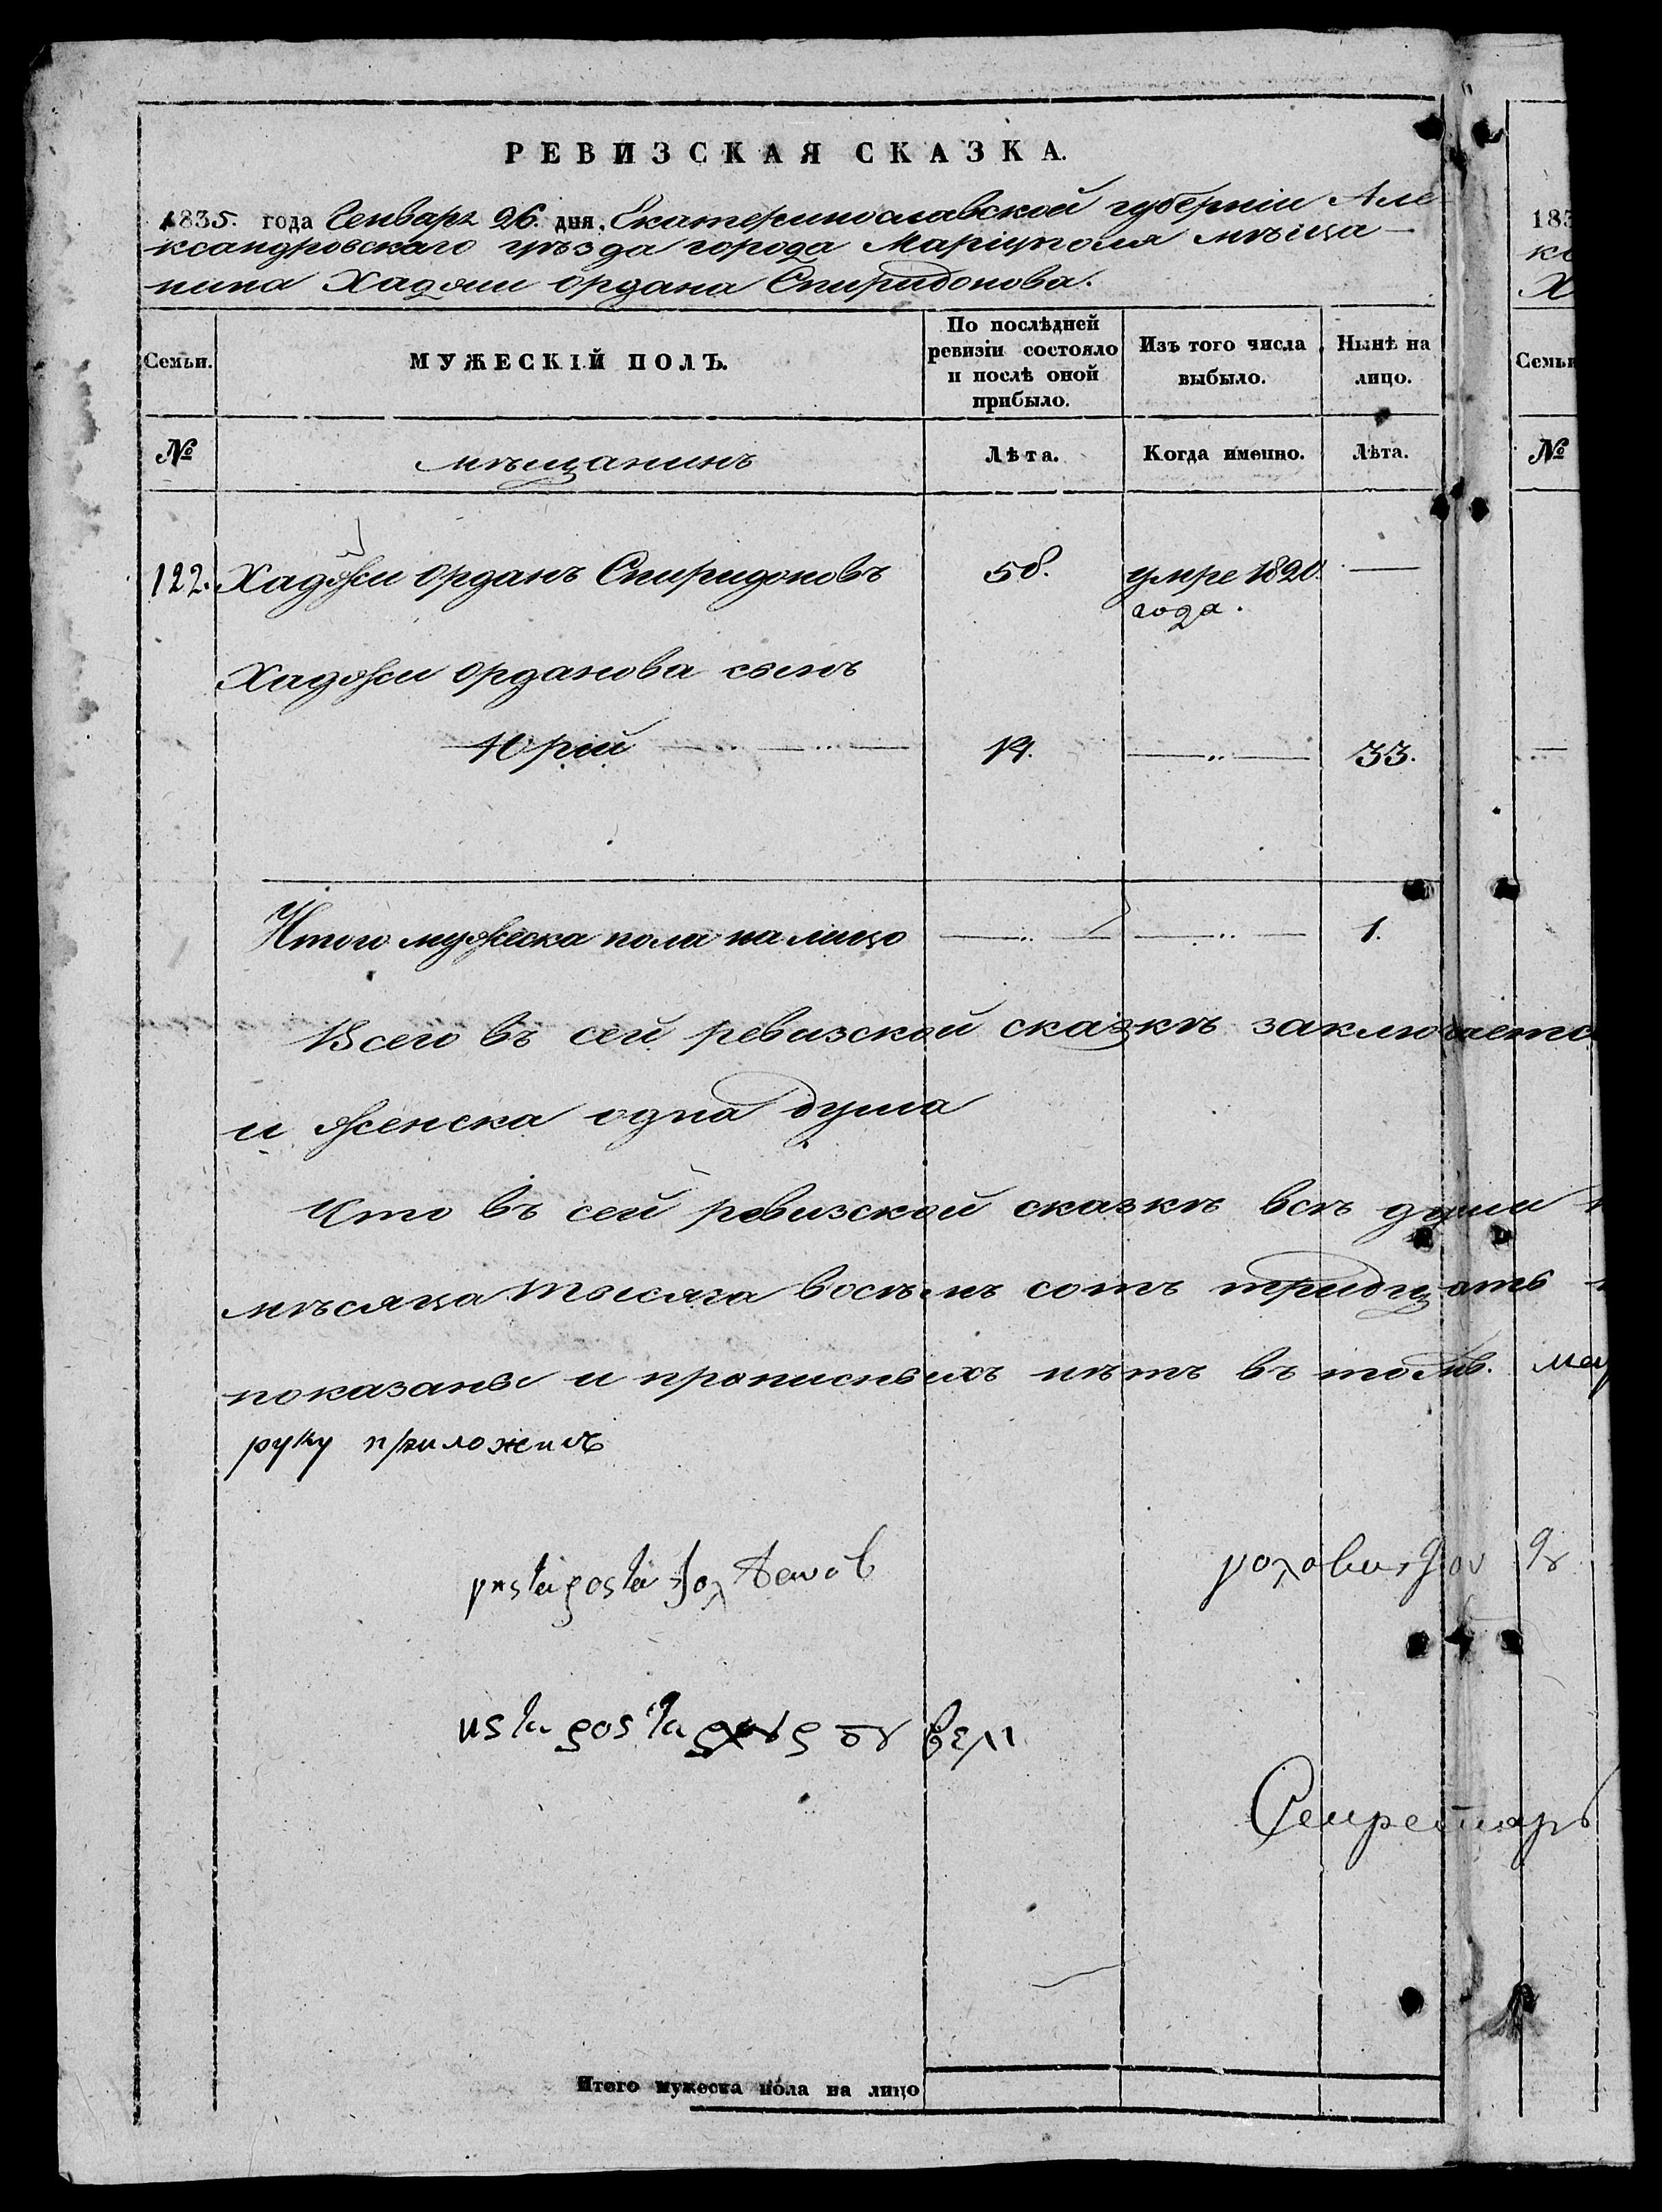 РЕВИЗСКАЯ СКАЗКА.
1835. года Генваря 26. дня, Екатеринославской губерніи Але
ксандровскаго уѣзда города Маріуполя мѣща-
нина Хаджи Ордана Спиридонова.
Семьи. МУЖЕСКІЙ ПОЛЪ. По послѣдней ревизіи состояло и послѣ оной прибыло. Изъ того числа выбыло. Нынѣ на лицо.
№ мѣщанинъ Лѣта. Когда именно. Лѣта.
122. Хаджи Орданъ Спиридоновъ 58. умре 1820. —
года.
Хаджи Орданова сынъ
Юрій — .. — .. — 14. — .. — 33.
Итого мужеска пола на лицо — .. — — .. — 1.
Всего въ сей ревизской сказкѣ заключаетс
и женска одна душа
Что въ сей ревизской сказкѣ всѣ души
мѣсяца тысяча восѣмъ сотъ тридцать
показаны и прописныхъ нѣтъ въ томъ.
руку приложилъ
Секретарь
Итого мужеска пола на лицо
183
Семьи
№